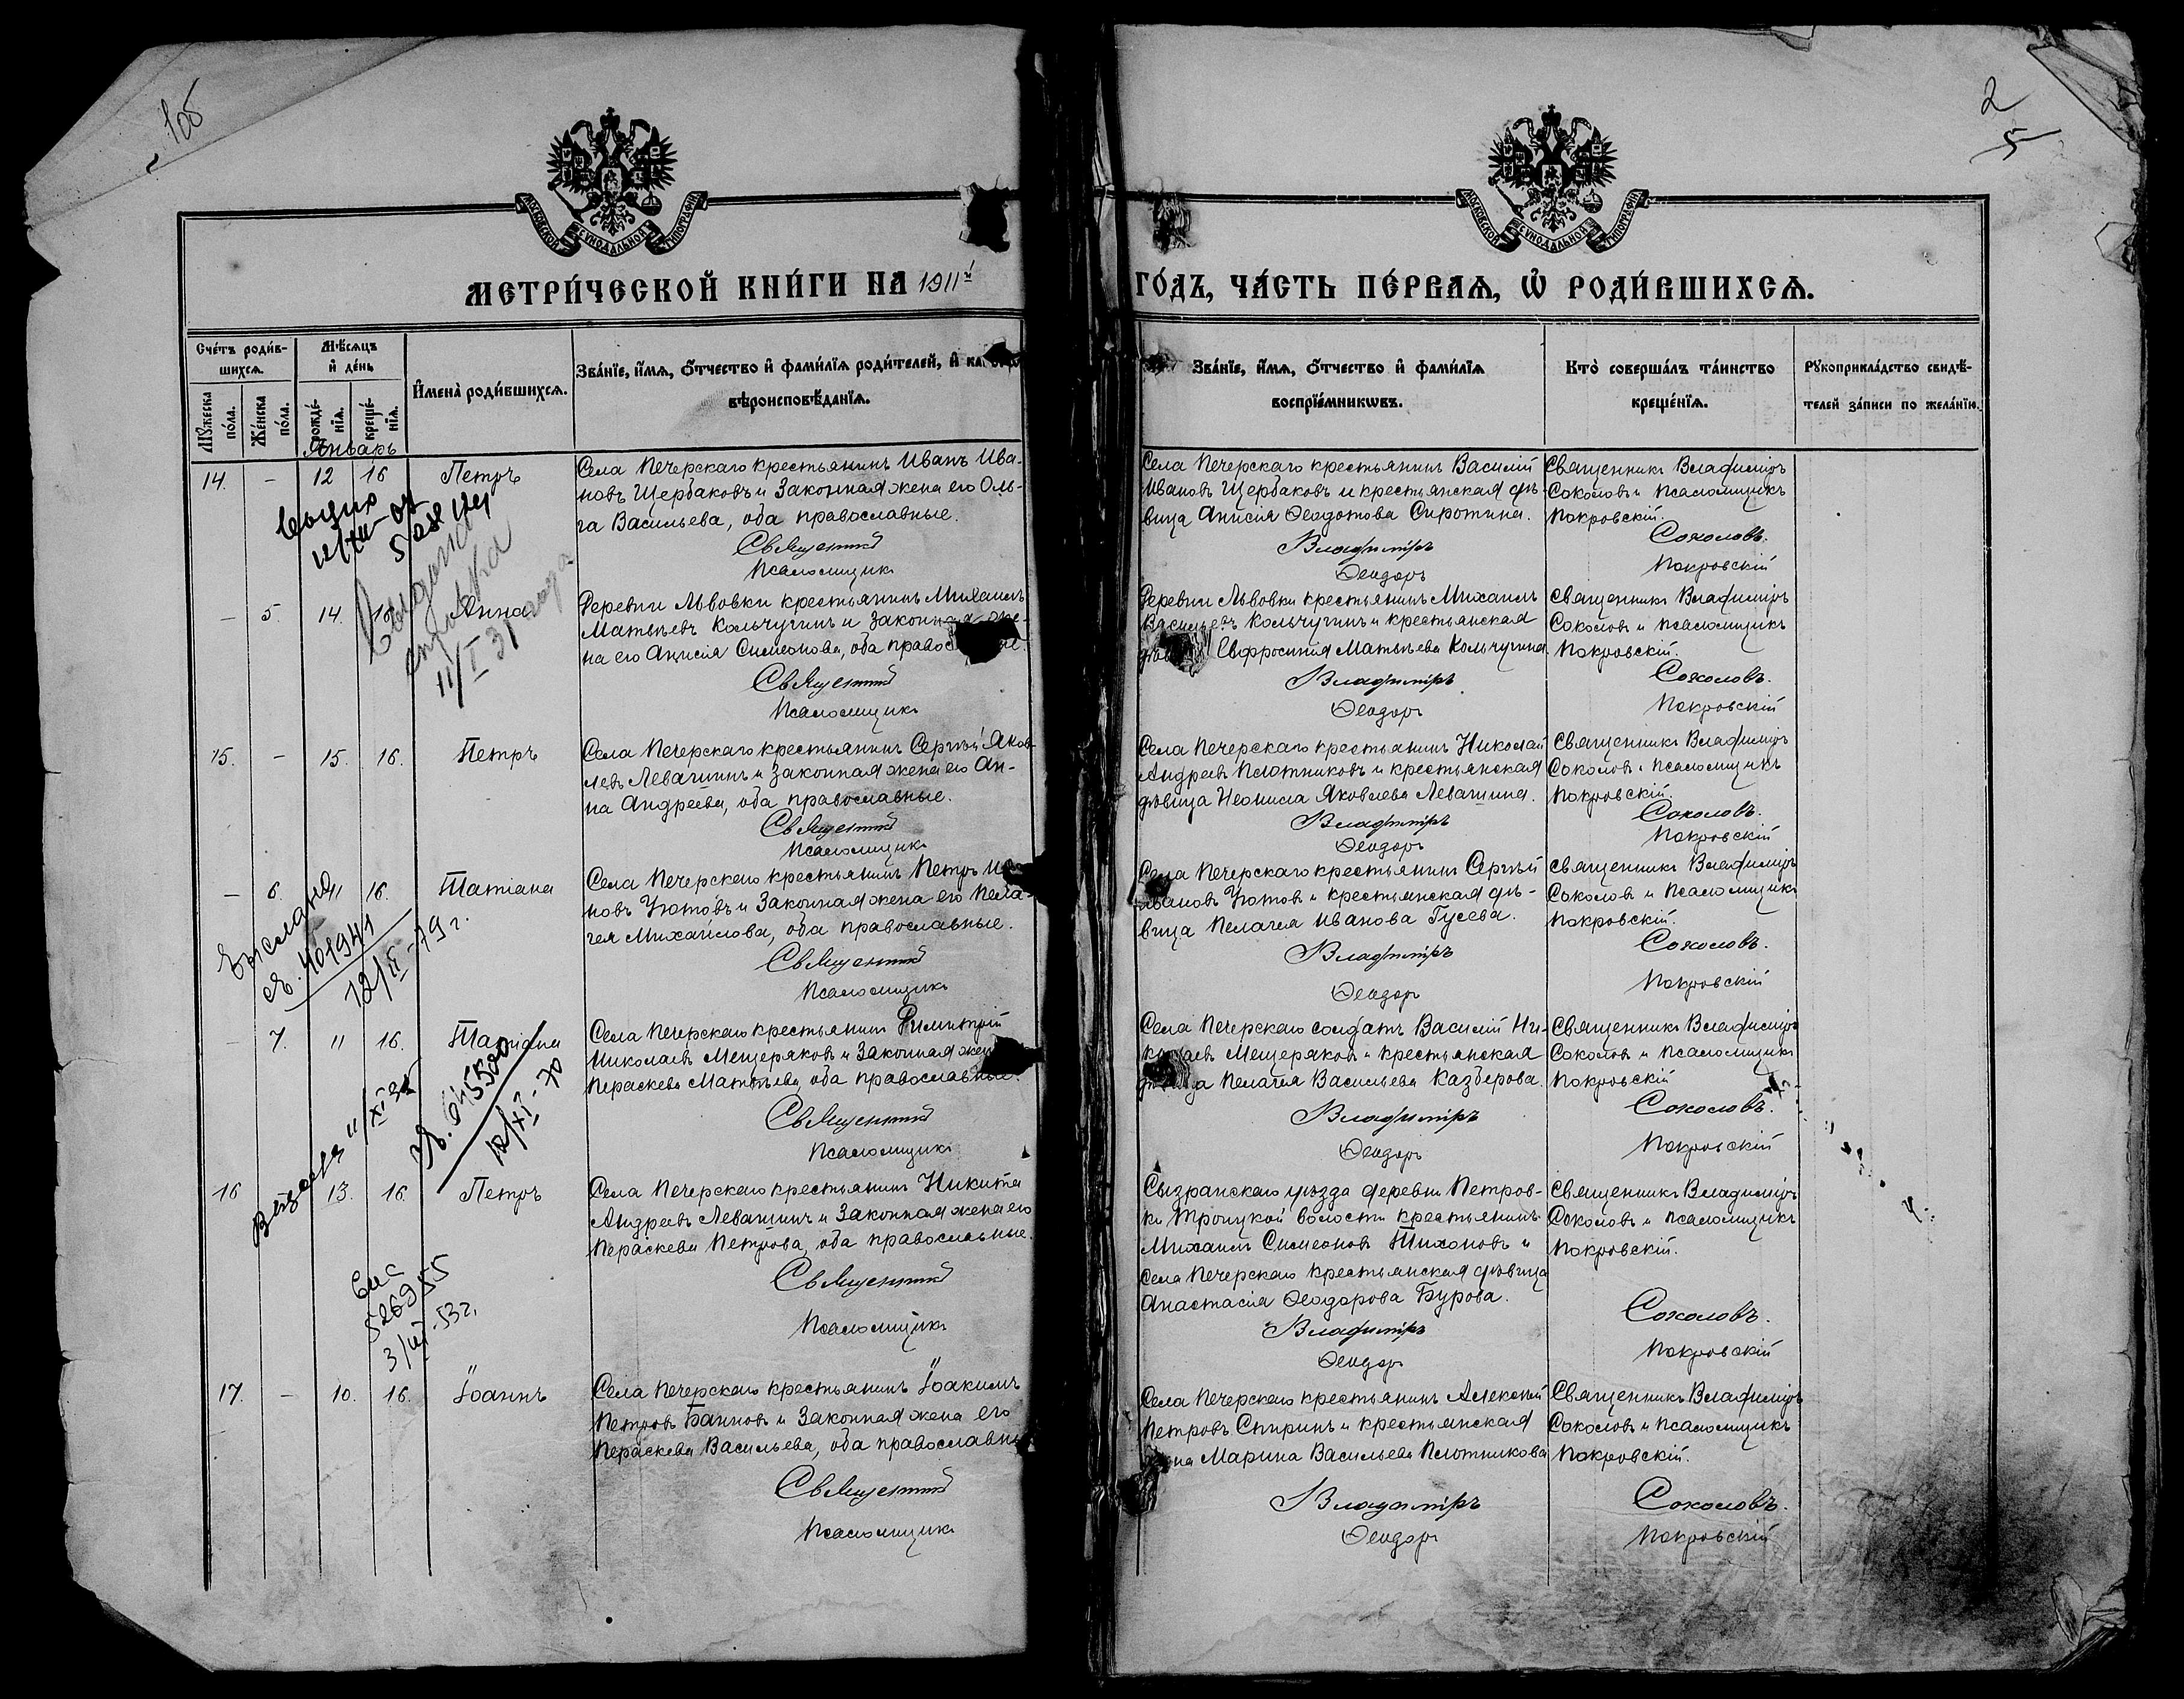 2
5
МОСКОВСКОЙ СѴНОДАЛЬНОЙ ТИПОГРАФІИ
МОСКОВСКОЙ СѴНОДАЛЬНОЙ ТИПОГРАФІИ
МЕТРИ́ЧЕСКОЙ КНИ́ГИ НА 1911й
ГО́ДЪ, ЧА́СТЬ ПЕ́РВАЯ, Ѡ РОДИ́ВШИХСЯ.
Сче́тъ роди́в-
шихся.
Мѣ́сяцъ
и де́нь
Имена̀ роди́вшихся.
Зва́нїе, и́мя, о́тчество и фами́лїя роди́телей, и
вѣроисповѣ́данїя.
Му́жеска по́ла.
Же́нска по́ла.
рожде́-
нїя.
креще́-
нїя.
Зва́нїе, и́мя, о́тчество и фами́лїя
воспрїе́мникѡвъ.
Кто̀ соверша́лъ та́инство
креще́нїя.
Рꙋкоприкла́дство свидѣ́-
телей за́писи по жела́нїю.
Январь
14. - 12 16 Петръ
Села Печерскаго крестьянинъ Иванъ Ива-
новъ Щербаковъ и законная жена его Оль-
га Васильева, оба православные.
Священникъ
Псаломщикъ
Села Печерскаго крестьянинъ Василій
Ивановъ Щербаковъ и крестьянская дѣ-
вица Анисія Ѳеодотова Сиротина.
Владиміръ
Ѳеодоръ
Священникъ Владиміръ
Соколовъ и псаломщикъ
Покровскій.
Соколовъ.
Покровскій
Выдана
справка
11/I 31 года
- 5. 14. 16 Анна
Деревни Львовки крестьянинъ Михаилъ
Матвѣевъ Кольчугинъ и законная же-
на его Анисія Симеонова, оба
Священникъ
Псаломщикъ
Деревни Львовки крестьянинъ Михаилъ
Васильевъ Кольчугинъ и крестьянская
Евфросинія Матвѣева Кольчугина.
Владиміръ
Ѳеодоръ
Священникъ Владиміръ
Соколовъ и псаломщикъ
Покровскій.
Соколовъ.
Покровскій
15. - 15. 16. Петръ
Села Печерскаго крестьянинъ Сергѣй Яков-
левъ Левашинъ и законная жена его Ан-
на Андреева, оба православные.
Священникъ
Псаломщикъ
Села Печерскаго крестьянинъ Николай
Андреевъ Плотниковъ и крестьянская
дѣвица Неонила Яковлева Левашина.
Владиміръ
Ѳеодоръ
Священникъ Владиміръ
Соколовъ и псаломщикъ
Покровскій.
Соколовъ.
Покровскій
- 6. 11 16. Татіана
Села Печерскаго крестьянинъ Петръ Ива-
новъ Утотовъ и законная жена его Пела-
гея Михайлова, оба православные.
Священникъ
Псаломщикъ
Села Печерскаго крестьянинъ Сергѣй
Ивановъ Утотовъ и крестьянская дѣ-
вица Пелагея Иванова Гусева.
Владиміръ
Ѳеодоръ
Священникъ Владиміръ
Соколовъ и псаломщикъ
Покровскій.
Соколовъ.
Покровскій
- 7. 11 16. Татіана
Села Печерскаго крестьянинъ Димитрій
Николаевъ Мещеряковъ и законная жена
Параскева Матвѣева, оба православные.
Священникъ
Псаломщикъ
Села Печерскаго солдатъ Василій Ни-
колаевъ Мещеряковъ и крестьянская
дѣвица Пелагея Васильева Казберова.
Владиміръ
Ѳеодоръ
Священникъ Владиміръ
Соколовъ и псаломщикъ
Покровскій
Соколовъ.
Покровскій
16 13. 16. Петръ
Села Печерскаго крестьянинъ Никита
Андреевъ Левашинъ и законная жена его
Параскева Петрова, оба православные.
Священникъ
Псаломщикъ
Сызранскаго уѣзда деревни Петров-
ки Троицкой волости крестьянинъ
Михаилъ Симеоновъ Тихоновъ и
села Печерскаго крестьянская дѣвица
Анастасія Ѳеодорова Бурова.
Владиміръ
Ѳеодоръ
Священникъ Владиміръ
Соколовъ и псаломщикъ
Покровскій.
Соколовъ.
Покровскій
526955
17. - 10. 16. Іоаннъ
Села Печерскаго крестьянинъ Іоакимъ
Петровъ Банновъ и законная жена его
Параскева Васильева, оба православные
Священникъ
Псаломщикъ
Села Печерскаго крестьянинъ Алексѣй
Петровъ Спиринъ и крестьянская
жена Марина Васильева Плотникова
Владиміръ
Ѳеодоръ
Священникъ Владиміръ
Соколовъ и псаломщикъ
Покровскій.
Соколовъ.
Покровскій